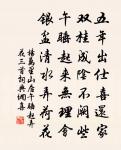 五年出仕喜還家
双桂成陰不闕些
午睡起來無理會
銀盆清水弄荷花
楊萬里山居午睡起弄
花三首詞典網